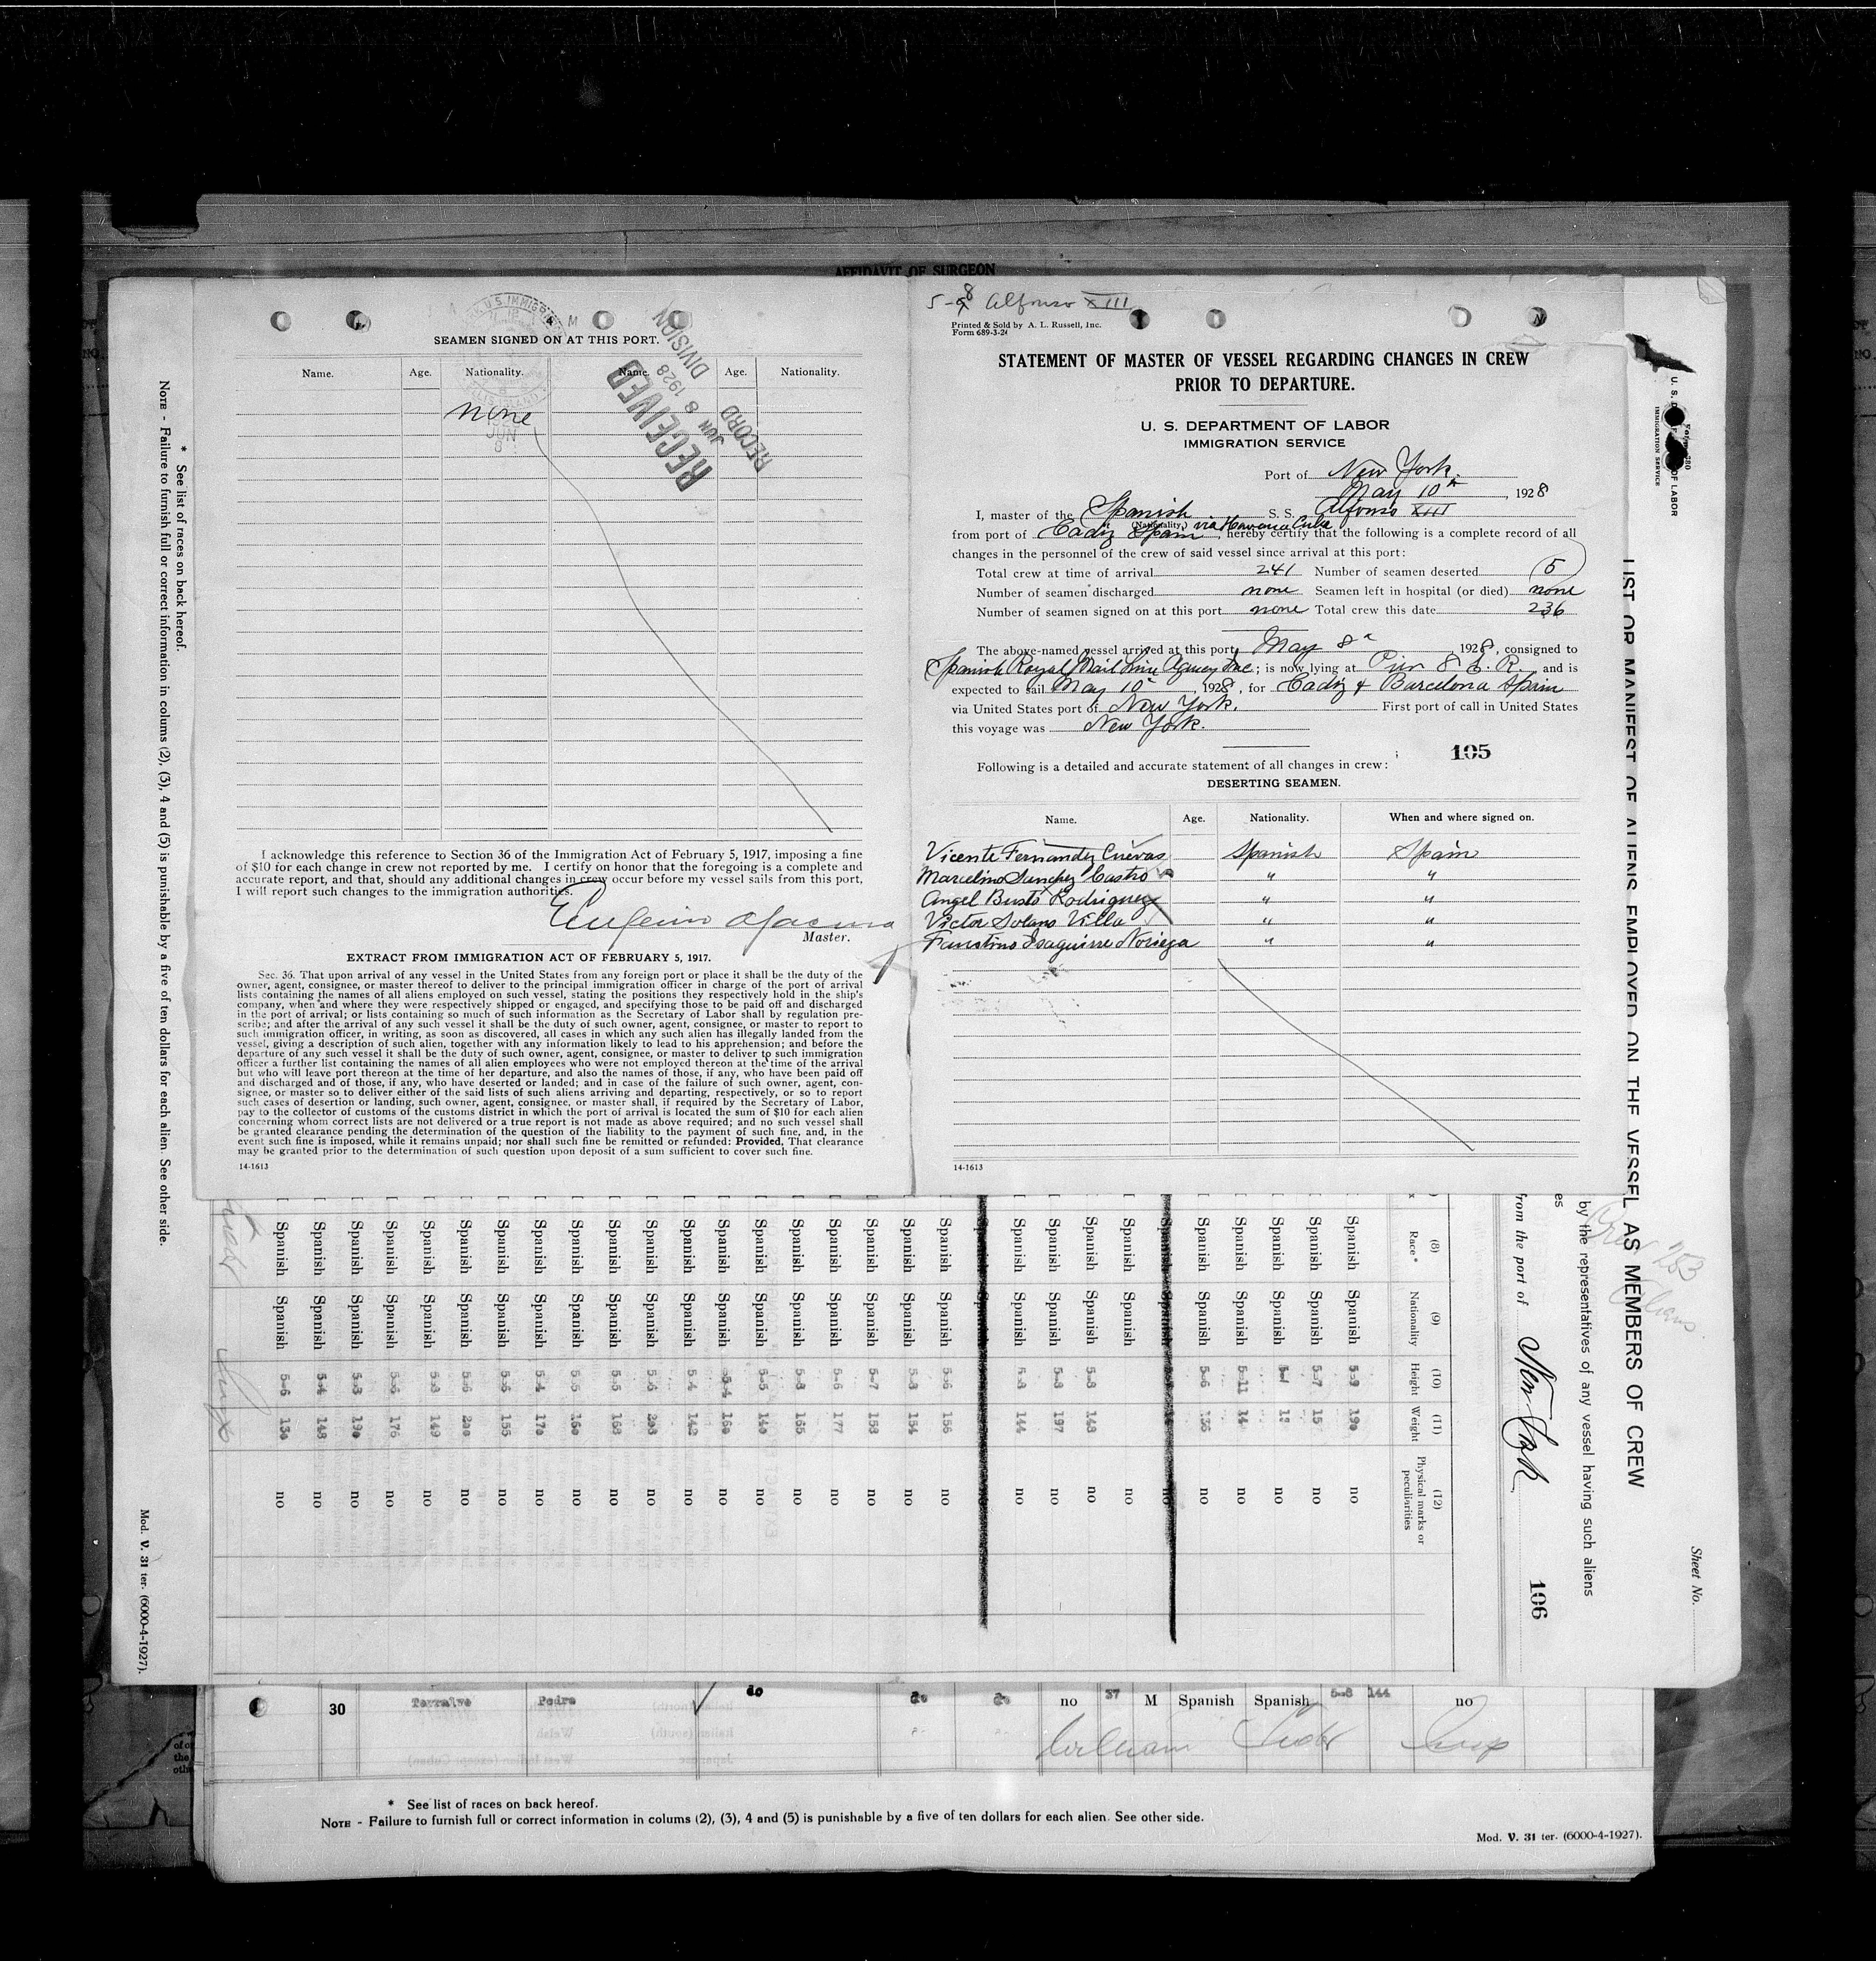 AFFIDAVIT OF SURGEON
SEAMEN SIGNED ON AT THIS PORT.
Name. Age. Nationality. Name. Age. Nationality.
none
JUN
8
RECEIVED
JUN 8 1928
RECORD DIVISION
I acknowledge this reference to Section 36 of the Immigration Act of February 5, 1917, imposing a fine
of $10 for each change in crew not reported by me. I certify on honor that the foregoing is a complete and
accurate report, and that, should any additional changes in crew occur before my vessel sails from this port,
I will report such changes to the immigration authorities.
Eugenio
Master.
EXTRACT FROM IMMIGRATION ACT OF FEBRUARY 5, 1917.
Sec. 36. That upon arrival of any vessel in the United States from any foreign port or place it shall be the duty of the
owner, agent, consignee, or master thereof to deliver to the principal immigration officer in charge of the port of arrival
lists containing the names of all aliens employed on such vessel, stating the positions they respectively hold in the ship's
company, when and where they were respectively shipped or engaged, and specifying those to be paid off and discharged
in the port of arrival; or lists containing so much of such information as the Secretary of Labor shall by regulation pre-
scribe; and after the arrival of any such vessel it shall be the duty of such owner, agent, consignee, or master to report to
such immigration officer, in writing, as soon as discovered, all cases in which any such alien has illegally landed from the
vessel, giving a description of such alien, together with any information likely to lead to his apprehension; and before the
departure of any such vessel it shall be the duty of such owner, agent, consignee, or master to deliver to such immigration
officer a further list containing the names of all alien employees who were not employed thereon at the time of the arrival
but who will leave port thereon at the time of her departure, and also the names of those, if any, who have been paid off
and discharged and of those, if any, who have deserted or landed; and in case of the failure of such owner, agent, con-
signee, or master so to deliver either of the said lists of such aliens arriving and departing, respectively, or so to report
such cases of desertion or landing, such owner, agent, consignee, or master shall, if required by the Secretary of Labor,
pay to the collector of customs of the customs district in which the port of arrival is located the sum of $10 for each alien
concerning whom correct lists are not delivered or a true report is not made as above required; and no such vessel shall
be granted clearance pending the determination of the question of the liability to the payment of such fine, and, in the
event such fine is imposed, while it remains unpaid; nor shall such fine be remitted or refunded: Provided, That clearance
may be granted prior to the determination of such question upon deposit of a sum sufficient to cover such fine.
14-1613
5-8 Alfonso XIII
Printed & Sold by A. L. Russell, Inc.
Form 689-3-24
STATEMENT OF MASTER OF VESSEL REGARDING CHANGES IN CREW
PRIOR TO DEPARTURE.
U. S. DEPARTMENT OF LABOR
IMMIGRATION SERVICE
Port of New York.
May 10th, 1928
I, master of the Spanish S. S. Alfonso XIII
(Nationality.) via Havana Cuba
from port of Cadiz Spain, hereby certify that the following is a complete record of all
changes in the personnel of the crew of said vessel since arrival at this port:
Total crew at time of arrival 241 Number of seamen deserted 5
Number of seamen discharged none Seamen left in hospital (or died) none
Number of seamen signed on at this port none Total crew this date 236
The above-named vessel arrived at this port May 8th 1928, consigned to
Spanish Royal Mail Line Agency Inc; is now lying at Pier 8 E. R. and is
expected to sail May 10th, 1928, for Cadiz & Barcelona Spain
via United States port of New York. First port of call in United States
this voyage was New York.
105
Following is a detailed and accurate statement of all changes in crew:
DESERTING SEAMEN.
Name. Age. Nationality. When and where signed on.
Vicente Fernandez Cuevas Spanish Spain
Marcelino Sanchez Castro " "
Angel Busto Rodriguez " "
Victor Solano Villa " "
Faustino Isaguirre Noriega " "
14-1613
* See list of races on back hereof.
NOTE - Failure to furnish full or correct information in colums (2), (3), 4 and (5) is punishable by a five of ten dollars for each alien. See other side.
Mod. V. 31 ter. (6000-4-1927).
U. S. OF LABOR
IMMIGRATION SERVICE
Sheet No.
LIST OR MANIFEST OF ALIENS EMPLOYED ON THE VESSEL AS MEMBERS OF CREW
Crew 253
Aliens
by the representatives of any vessel having such aliens
from the port of New York
106
(8) Race * (9) Nationality (10) Height (11) Weight (12) Physical marks or peculiarities
Spanish Spanish 5-9 190 no
Spanish Spanish 5-7 15 no
Spanish Spanish no
Spanish Spanish 5-11 14 no
Spanish Spanish 5-6 136 no
Spanish Spanish no
Spanish Spanish 5-8 148 no
Spanish Spanish 5-8 197 no
Spanish Spanish 5-8 144 no
Spanish Spanish 5-6 156 no
Spanish Spanish 5-8 154 no
Spanish Spanish 5-7 158 no
Spanish Spanish 5-6 177 no
Spanish Spanish 5-8 165 no
Spanish Spanish 5-5 140 no
Spanish Spanish 5-4 160 no
Spanish Spanish 5-4 142 no
Spanish Spanish 5-6 208 no
Spanish Spanish 5-5 168 no
Spanish Spanish 5-5 160 no
Spanish Spanish 5-4 170 no
Spanish Spanish 5-6 155 no
Spanish Spanish 5-6 200 no
Spanish Spanish 5-8 149 no
Spanish Spanish 5-6 176 no
Spanish Spanish 5-3 190 no
Spanish Spanish 5-4 148 no
Spanish Spanish 5-6 130 no
30 Torralve Pedro do do do no 37 M Spanish Spanish 5-8 144 no
* See list of races on back hereof.
NOTE - Failure to furnish full or correct information in colums (2), (3), 4 and (5) is punishable by a five of ten dollars for each alien. See other side.
Mod. V. 31 ter. (6000-4-1927).